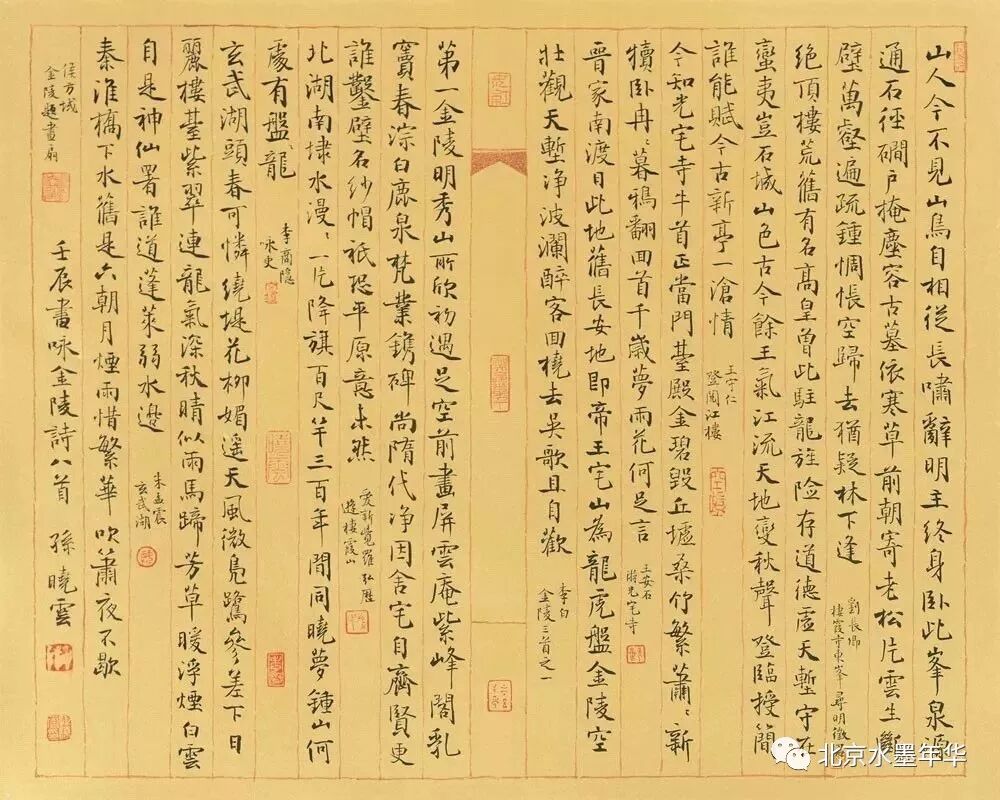 山人今不見山鳥自相從長嘯辭明王終身臥此峯泉源
通石徑磵戶掩塵容古墓依寒草前朝寄老松片雲生斷
壁萬壑遍疏鍾惆悵空歸去猶疑林下逢
劉長卿
棲霞寺東峯尋明徵君
絕頂樓荒舊有名高皇曾此駐龍旌險存道德虛天塹守在
蠻夷豈石城山色古今餘王氣江流天地變秋聲登臨授簡
誰能賦今古新亭一滄情
王守仁
登閱江樓
今知光宅寺牛首正當門臺殿金碧毀丘墟桑竹繁蕭〻新
犢臥冉〻暮鴉翻回首千歲夢雨花何足言
王安石
游光宅寺
晉家南渡日此地舊長安地即帝王宅山為龍虎盤金陵空
壯觀天塹淨波瀾醉客回橈去吳歌且自歡
李白
金陵三首之一
第一金陵明秀山所欣初遇足空前畫屏雲庵紫峰閣乳
竇春淙白鹿泉梵業鐫碑尚隋代淨因舍宅自齊賢更
誰鑿壁名紗帽祇恐平原意未然
愛新覺羅弘曆
遊棲霞山
北湖南埭水漫〻一片降旗百尺竿三百年間同曉夢鍾山何
處有盤龍
李商隱
詠史
玄武湖頭春可憐繞堤花柳媚遥天風微鳧鷺參差下日
麗樓臺紫翠連龍氣深秋晴似雨馬蹄芳草暖浮煙白雲
自是神仙署誰道蓬萊弱水邊
朱孟震
玄武湖
秦淮橋下水舊是六朝月煙雨惜繁華吹簫夜不歇
侯方域
金陵題畫扇
壬辰書詠金陵詩八首 孫曉雲
北京水墨年华